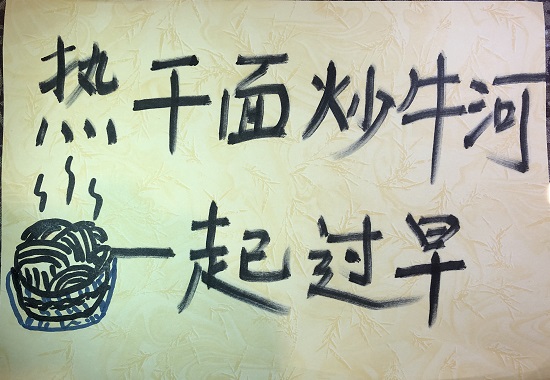 热干面炒牛河
一起过早